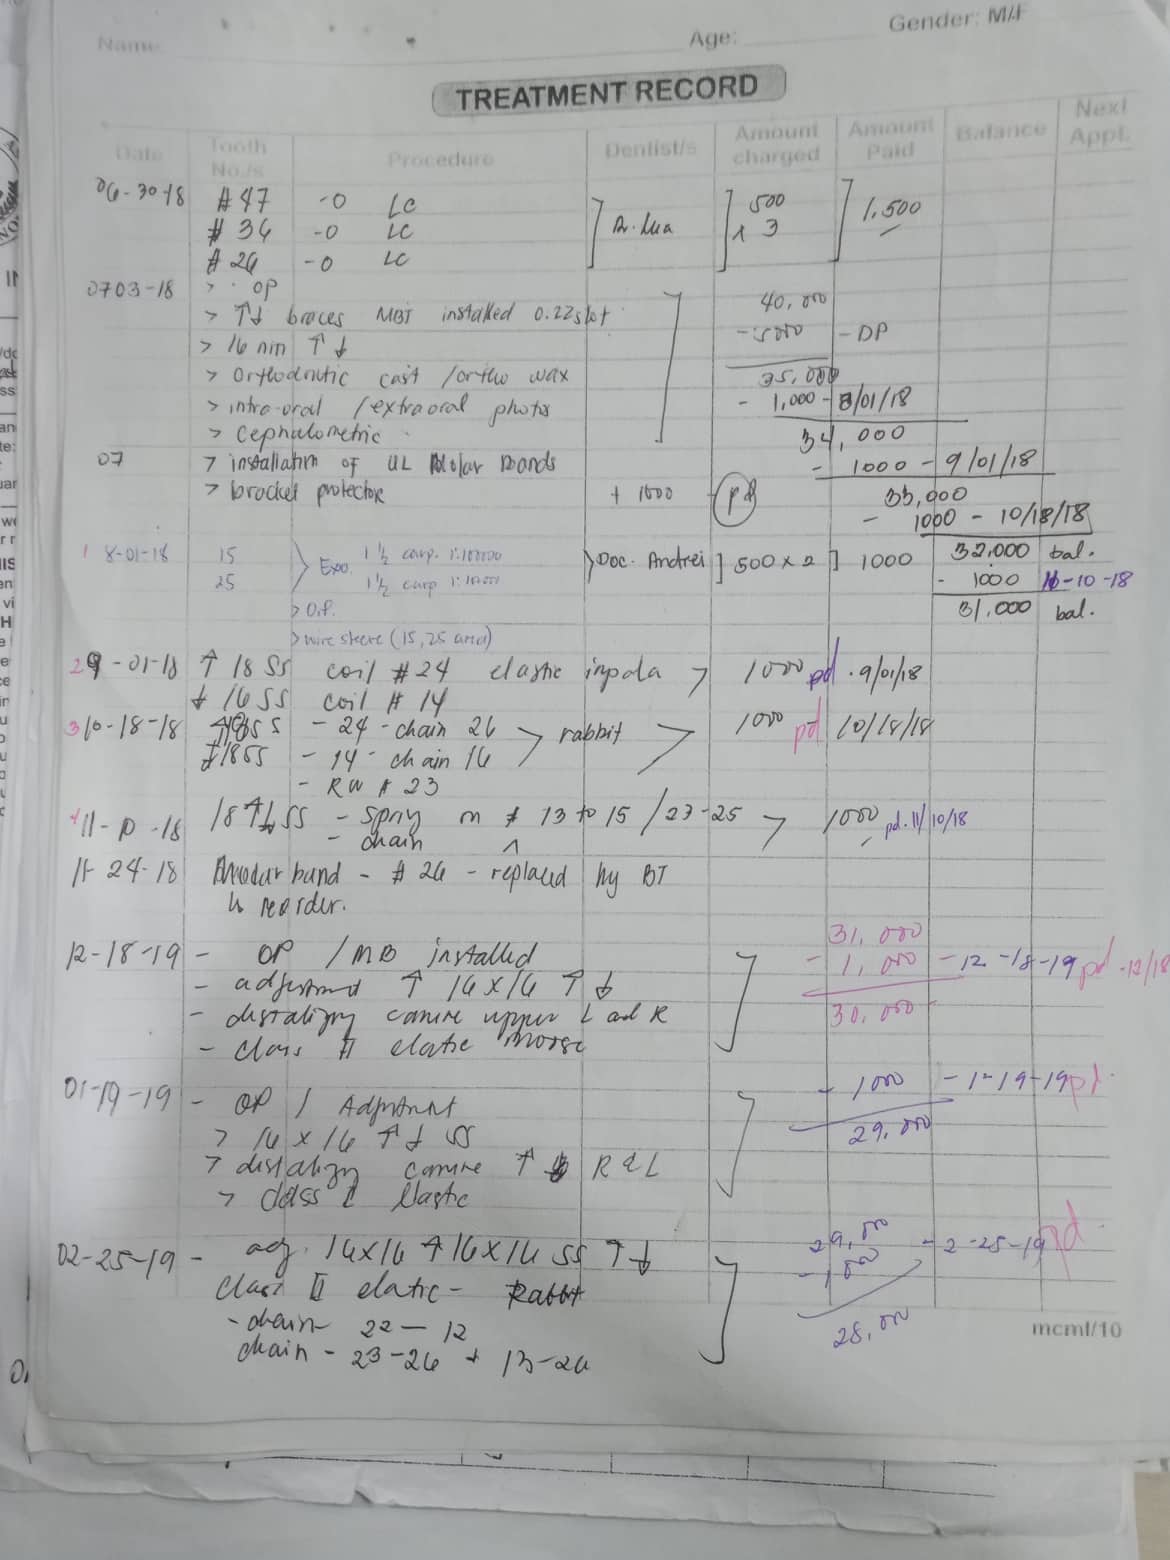 Name Age: Gender: M/F
TREATMENT RECORD
Date Tooth No./s Procedure Dentist/s Amount charged Amount Paid Balance Next Appt.
06-30-18 #47 -O LC 500 1,500
#36 -O LC x 3
#26 -O LC
0703-18 > OP 40,000
> ↑↓ braces MBT installed 0.22 slot - 5000 - DP
> 16 niti ↑↓ 35,000
> orthodontic cast / ortho wax - 1,000 - 8/01/18
> intra-oral / extraoral photos 34,000
> cephalometric
07 > installation of UL Molar Bands - 1000 - 9/01/18
> bracket protector + 1000 pd 33,000
- 1000 - 10/18/18
1 8-01-18 15 Exo. 1 1/2 carp. 1:100000 Doc. Andrei 500 x 2 1000 32,000 bal.
25 1 1/2 carp - 1000 11-10-18
> O.P. 31,000 bal.
> wire sleeve (15, 25 area)
2 9-01-18 ↑ 18 SS coil #24 elastic impala > 1000 pd. 9/01/18
↓ 16 SS coil #14
3 10-18-18 ↑18SS - 24 - chain 26 > rabbit > 1000 pd 10/18/18
↓18SS - 14 - chain 16
#23
4 11-10-18 18 ↑↓ SS - spring on # 13 to 15 / 23-25 > 1000 pd. 11/10/18
- chain
11-24-18 Molar band - #26 - replaced by BT
↳ reorder.
12-18-19 - OP / MB installed 31,000
- adjustment ↑ 16x16 ↑↓ - 1,000 - 12-18-19 pd - 12/18
- distalizing canine upper L and R 30,000
- class II elastic moose
01-19-19 - OP / Adjustment - 1000 - 1-19-19 pd.
> 16 x 16 ↑↓ SS 29,000
> distalizing canine ↑ R & L
> class I elastic
02-25-19 - adj. 16x16 ↑ 16x16 SS ↑↓ 29,000 - 2-25-19 pd.
class II elatic - Rabbit - 1000
- chain 22 - 12 28,000
chain - 23-26 + 13-26
mcml/10